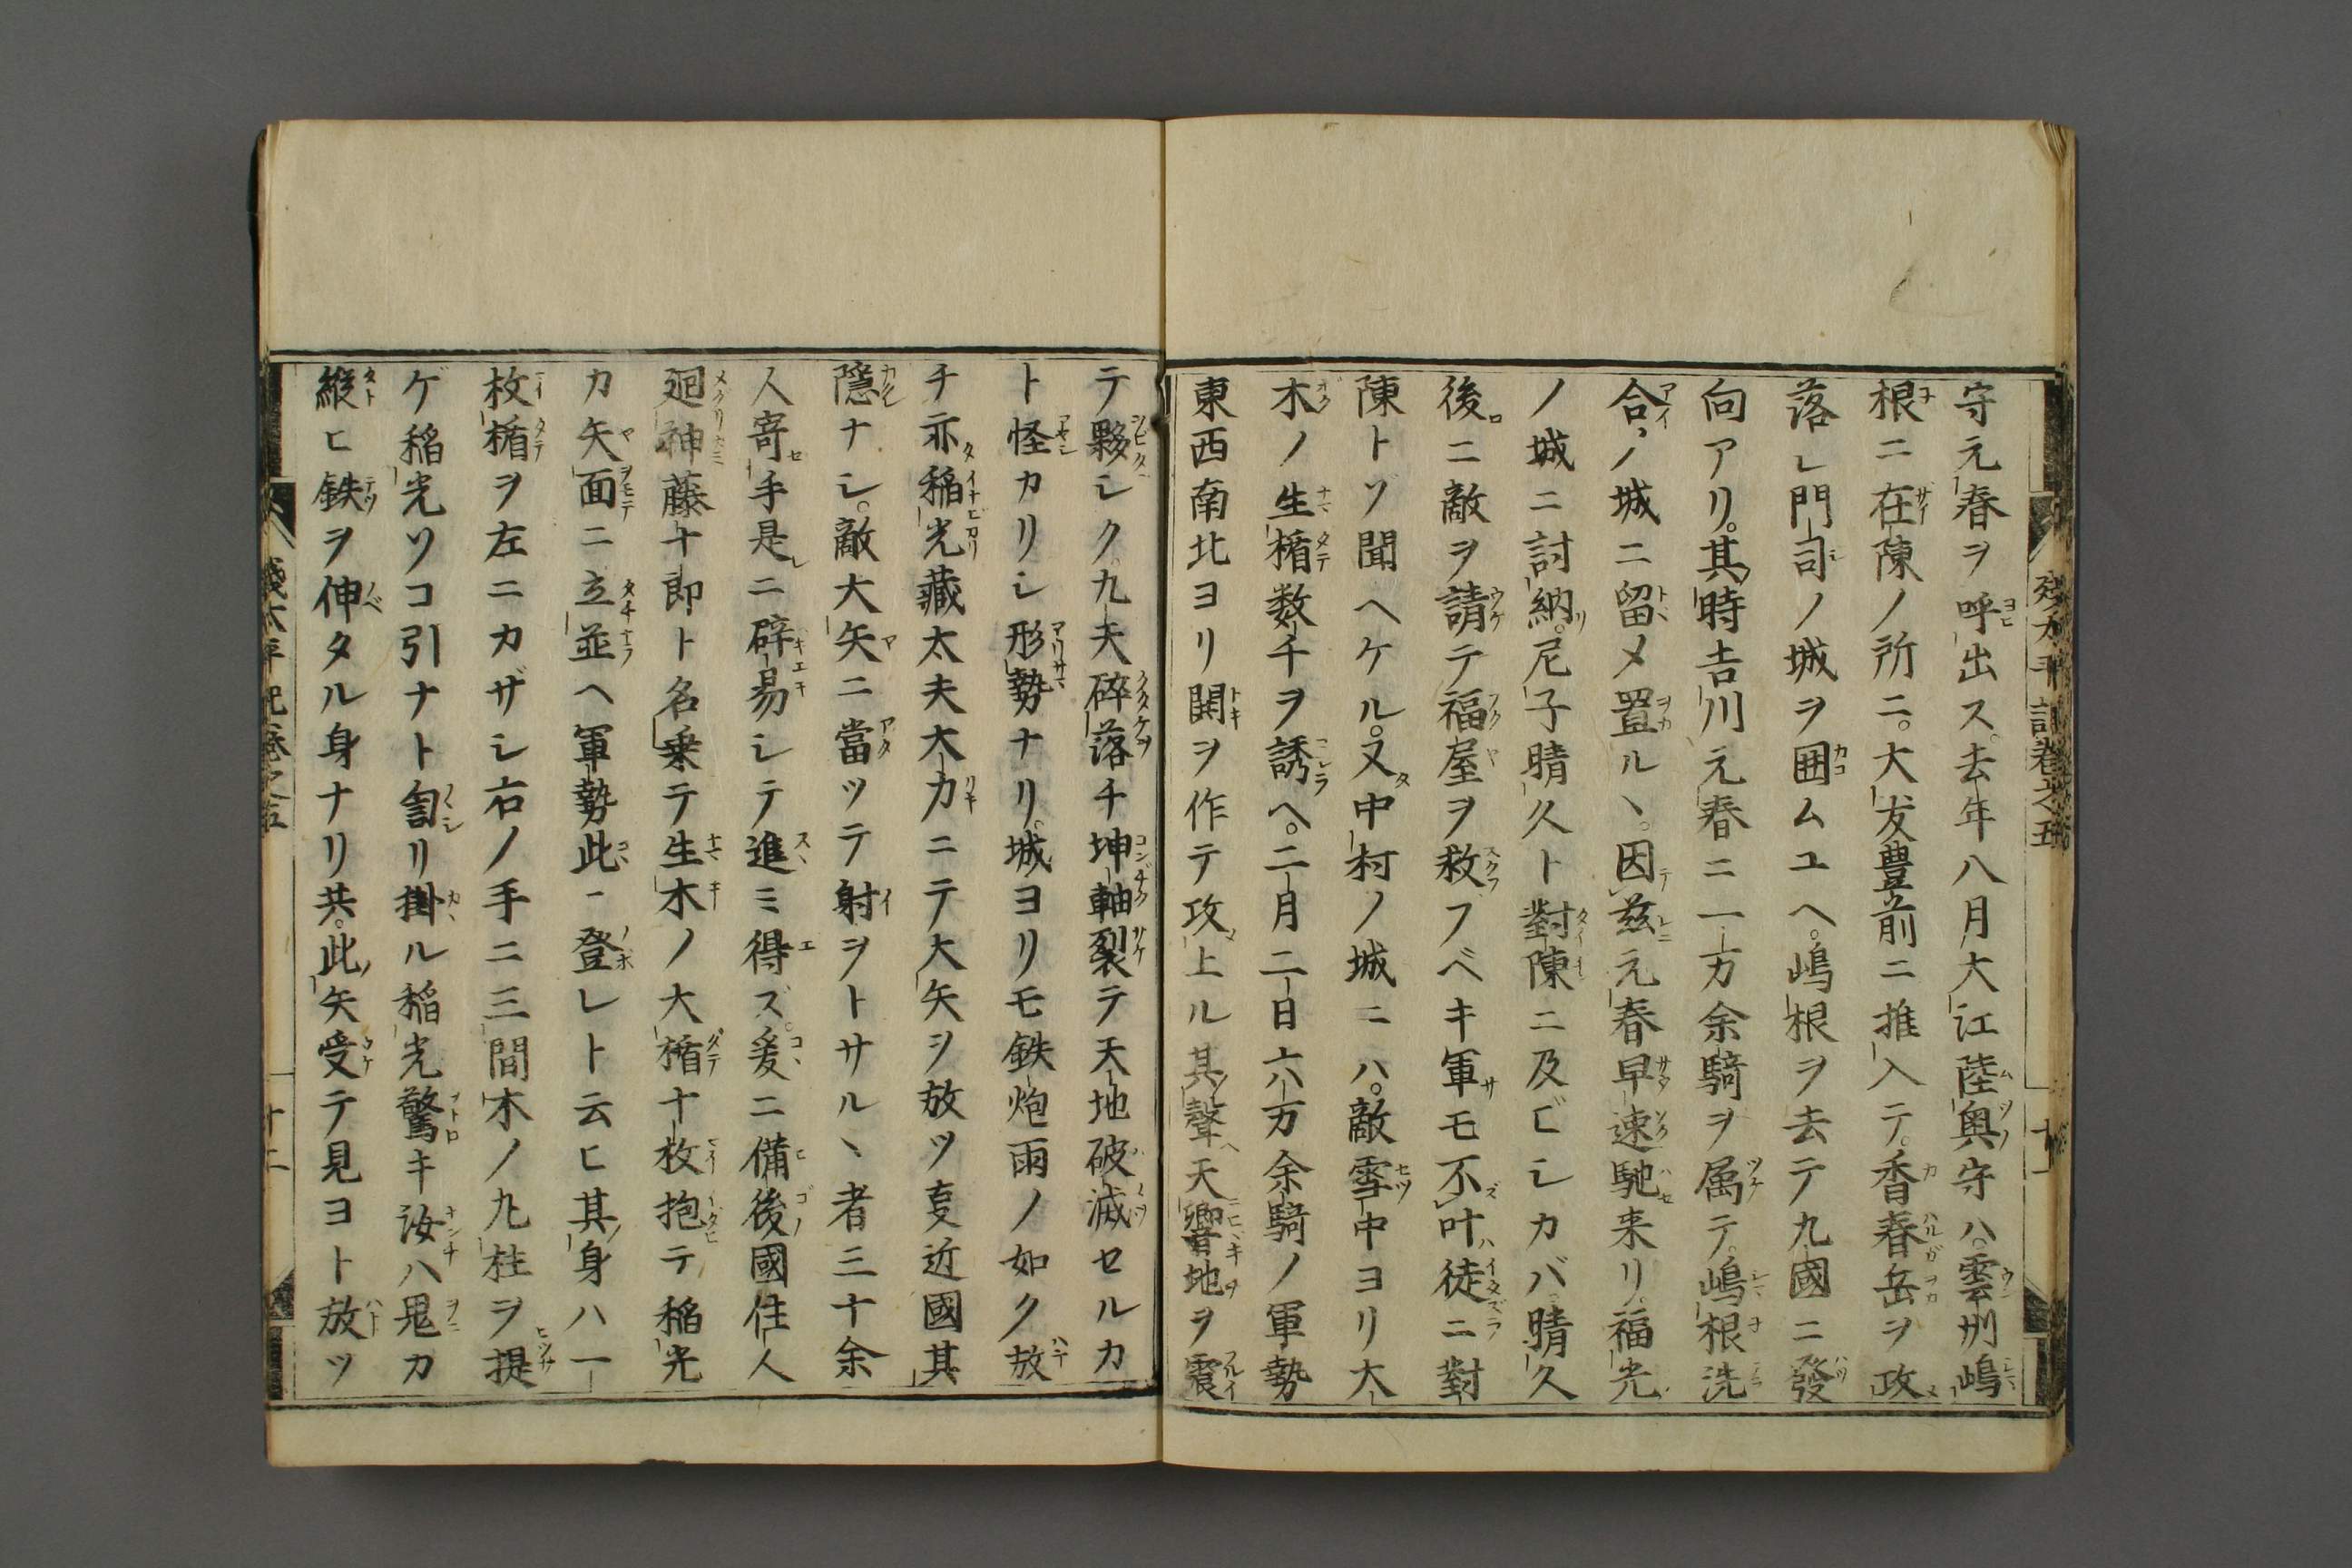 守元春ヲ呼出ス。去年八月大江陸奥守ハ。雲州嶋
根ニ在陳ノ所ニ。大友豊前ニ推入テ。香春岳ヲ攻
落レ門司ノ城ヲ囲ムユヘ。嶋根ヲ去テ九國ニ發
向アリ。其時吉川元春ニ一万余騎ヲ属テ。嶋根洗
合ノ城ニ留メ置ルヽ。因茲元春早速馳来リ。福光
ノ城ニ討納。尼子晴久ト對陳ニ及ビシカバ。晴久
後ニ敵ヲ請テ福屋ヲ救フベキ軍モ不叶徒ニ對
陳トゾ聞ヘケル。又中村ノ城ニハ。敵雪中ヨリ大
木ノ生楯数千ヲ誘ヘ。二月二日六万余騎ノ軍勢
東西南北ヨリ鬨ヲ作テ攻上ル其聲天響地ヲ震
テ夥シク。九天碎落チ坤軸裂テ天地破滅セルカ
ト怪カリシ形勢ナリ。城ヨリモ鉄炮雨ノ如ク放
チ亦稲光藏太夫大力ニテ大矢ヲ放ツ叓近國其
隠ナシ。敵大矢ニ當ツテ射ヲトサルヽ者三十余
人寄手是ニ辟易シテ進ミ得ズ。爰ニ備後國住人
廻神藤十郎ト名乗テ生木ノ大楯十枚抱テ稲光
カ矢面ニ立並ヘ軍勢此ニ登レト云ヒ其身ハ一
枚楯ヲ左ニカザシ右ノ手ニ三間木ノ丸柱ヲ提
ゲ稲光ソコ引ナト訇リ掛ル稲光驚キ汝ハ鬼カ
縦ヒ鉄ヲ伸タル身ナリ共。此矢受テ見ヨト放ツ
残太平記巻之五
十二